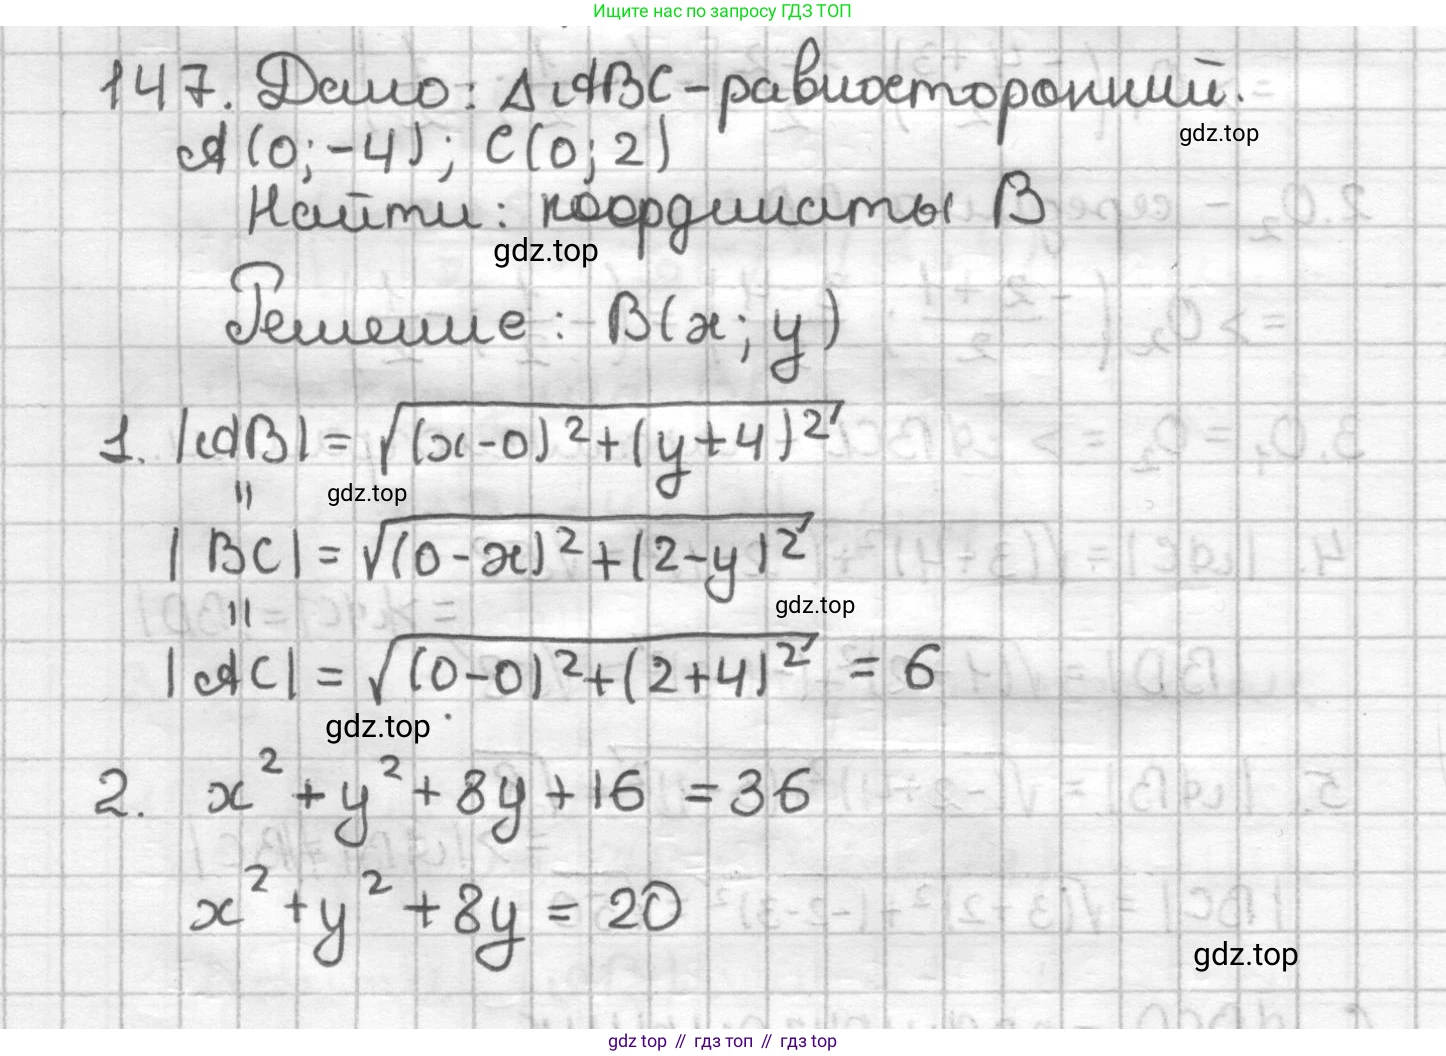 Ищите нас по запросу ГДЗ ТОП
147. Дано: △ABC - равносторонний.
gdz.top
A(0; -4); C(0; 2)
Найти: координаты B
gdz.top
Решение: B(x; y)
1. |AB| = √((x-0)²+(y+4)²)
=
gdz.top
|BC| = √((0-x)²+(2-y)²)
=
gdz.top
|AC| = √((0-0)²+(2+4)²) = 6
gdz.top
2. x²+y²+8y+16 = 36
x²+y²+8y = 20
gdz.top
gdz top // гдз топ // gdz top